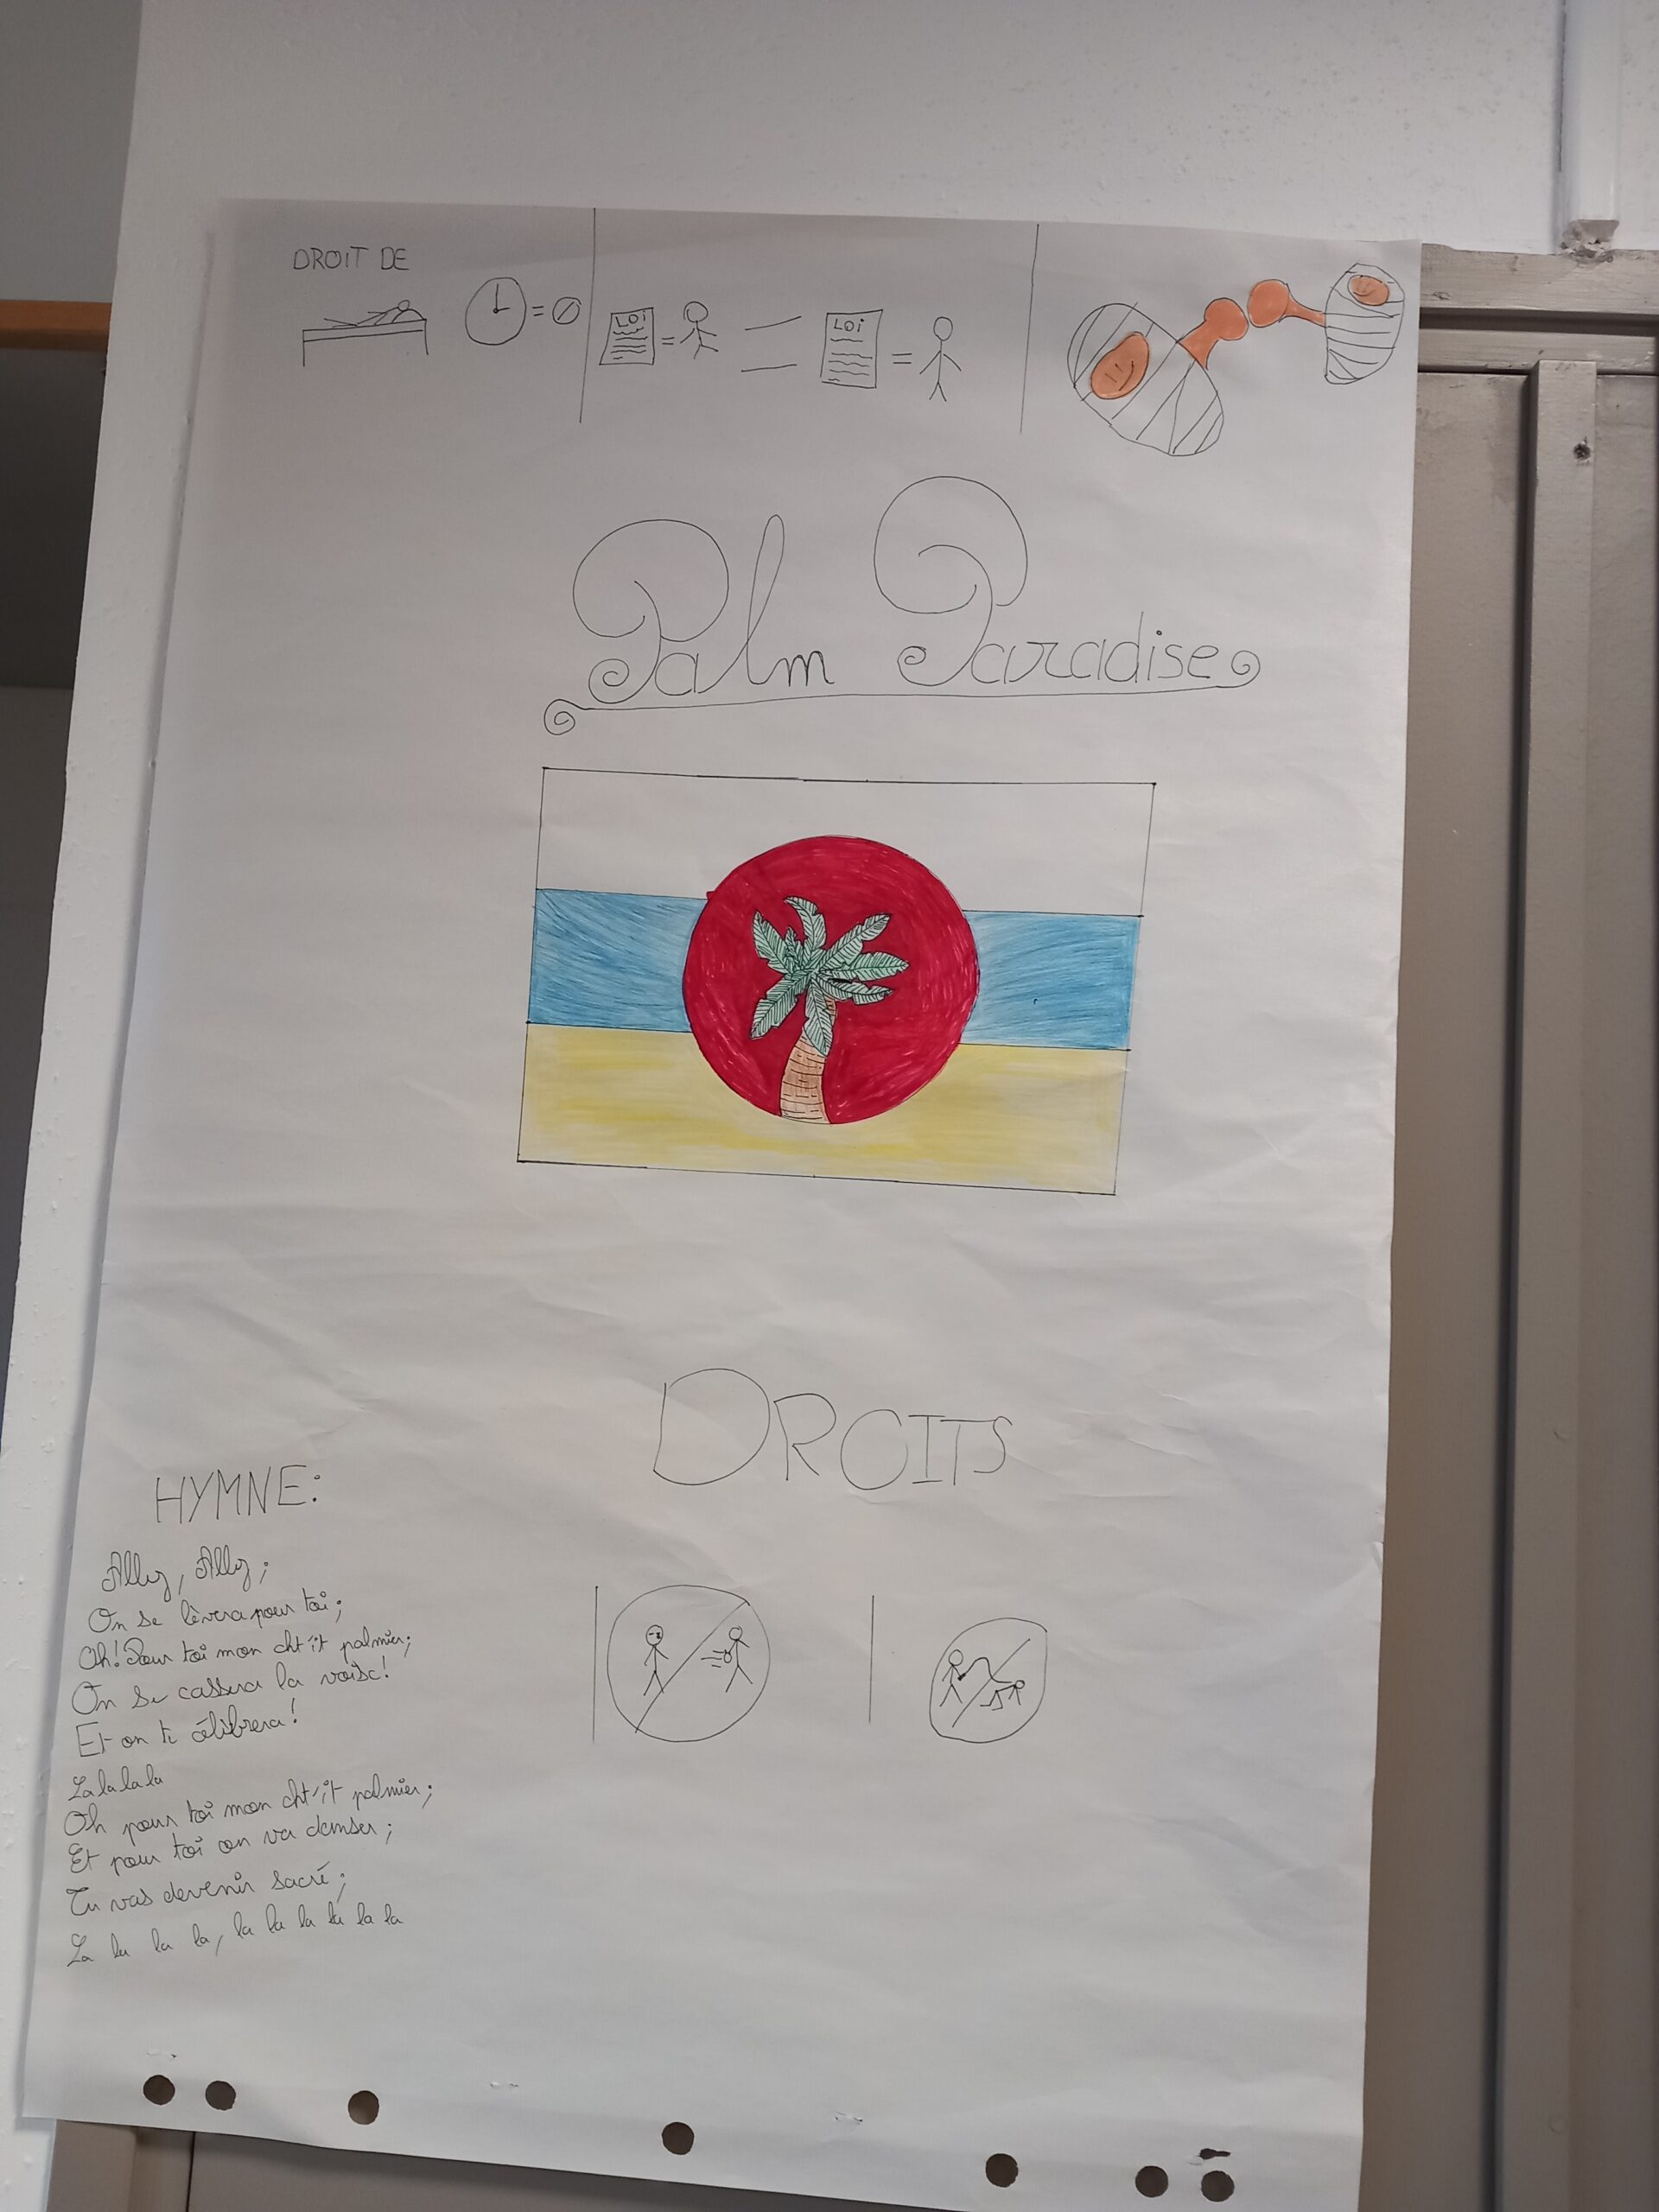 DROIT DE
LOI
LOI
Palm Paradise
DROITS
HYMNE:
Allez, Allez;
On se lèvera pour toi;
Oh! Pour toi mon cht'it palmier;
On se cassera la voix!
Et on te célèbrera!
La la la la
Oh pour toi mon cht'it palmier;
Et pour toi on va danser;
Tu vas devenir sacré;
La la la la, la la la la la la